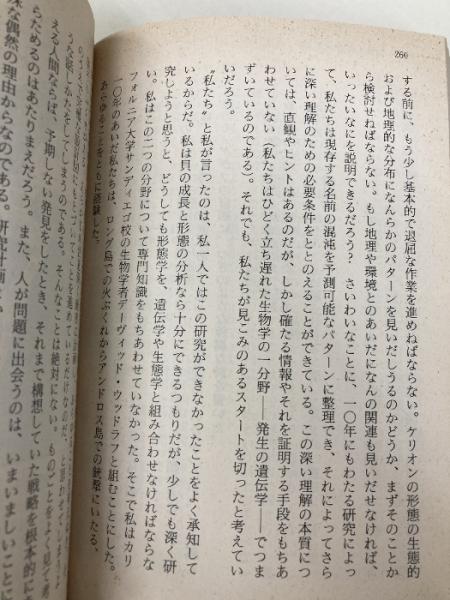 260
する前に、もう少し基本的で退屈な作業を進めねばならない。ケリオンの形態の生態的
および地理的な分布になんらかのパターンを見いだしうるのかどうか、まずそのことか
ら検討せねばならない。もし地理や環境とのあいだになんの関連も見いだせなければ、
いったいなにを説明できるだろう？　さいわいなことに、一〇年にもわたる研究によっ
て、私たちは現存する名前の混沌を予測可能なパターンに整理でき、それによってさら
に深い理解のための必要条件をととのえることができている。この深い理解の本質につ
いては、直観やヒントはあるのだが、しかし確たる情報やそれを証明する手段をもちあ
わせていない（私たちはひどく立ち遅れた生物学の一分野――発生の遺伝学――でつま
ずいているのである）。それでも、私たちが見こみのあるスタートを切ったと考えてい
いだろう。
“私たち”と私が言ったのは、私一人ではこの研究ができなかったことをよく承知して
いるからだ。私は貝の成長と形態の分析なら十分にできるつもりだが、少しでも深く研
究しようと思うと、どうしても形態学を、遺伝学や生態学と組み合わせなければならな
い。私はこの二つの分野について専門知識をもちあわせていなかった。そこで私はカリ
フォルニア大学サンディエゴ校の生物学者デーヴィッド・ウッドラフと組むことにした。
一〇年のあいだ私たちは、ロング島での火ぶくれからアンドロス島での銃撃にいたる、
あらゆることをともに経験した。
える人間ならば、予期しない発見をしたとき、それまで構想していた戦略を根本的に
らためるのはあたりまえだろう。また、人が問題に出会うのは、いまいましいことに
な偶然の理由からなのである。